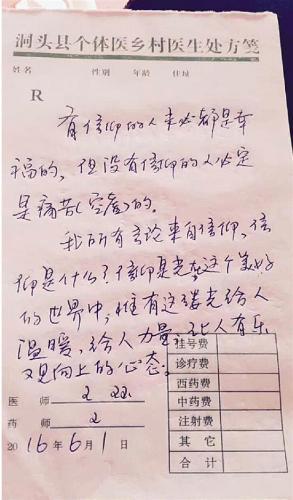 洞头县个体医乡村医生处方笺
姓名 性别 年龄 住址
R
有信仰的人未必都是幸
福的，但没有信仰的人必定
是痛苦(空虚)的.
我所有言论来自信仰，信
仰是什么？信仰是光在这个美好
的世界中，惟有这缕光给人
温暖，给人力量，让人有乐
观向上的心态。
挂号费
诊疗费
医 师
西药费
中药费
药 师
注射费
2016年6月1日
其 它
合 计